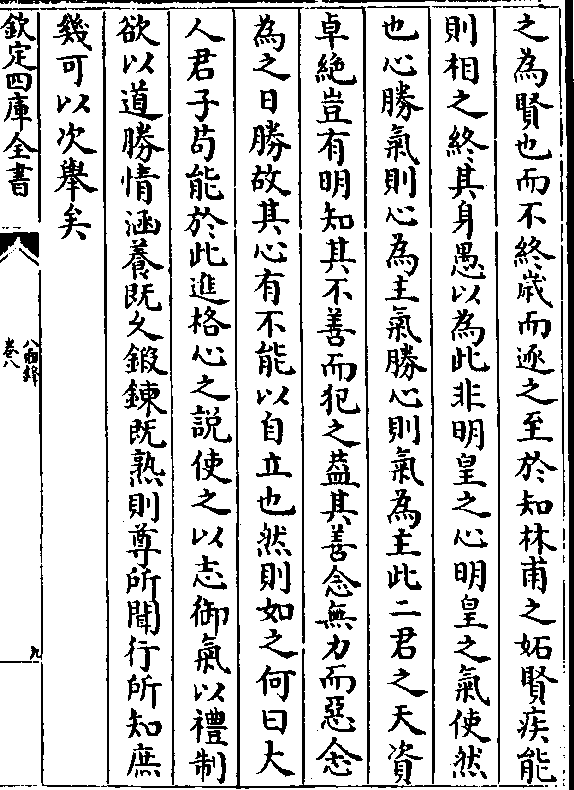 之為賢也而不終歲而逐之至於知林甫之妬賢疾能
則相之終其身愚以為此非明皇之心明皇之氣使然
也心勝氣則心為主氣勝心則氣為主此二君之天資
卓絶豈有明知其不善而犯之葢其善念無力而惡念
為之日勝故其心有不能以自立也然則如之何曰大
人君子茍能於此進格心之說使之以志御氣以禮制
欲以道勝情涵養既久鍛鍊既熟則尊所聞行所知庶
幾可以次舉矣
欽定四庫全書
卷八
九